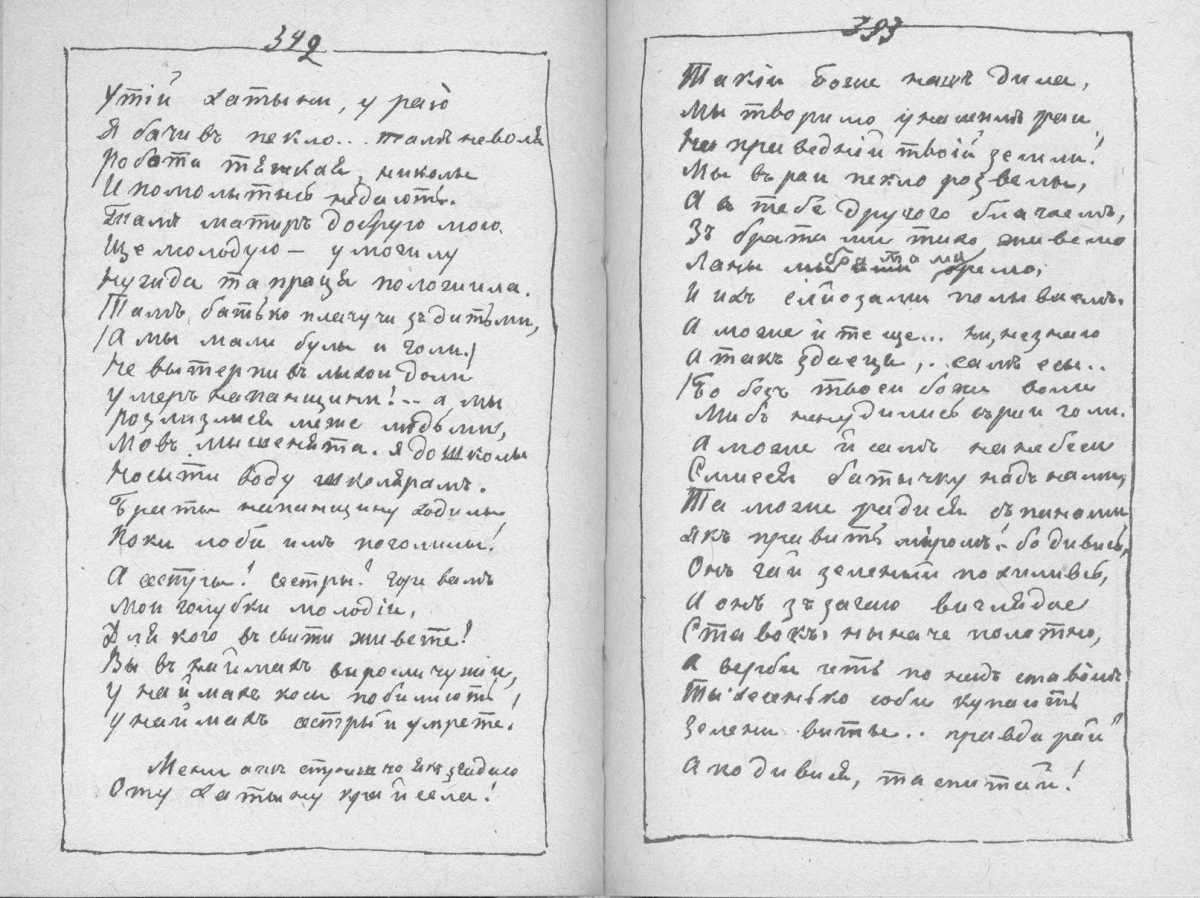 342
Утій хатыни, у раю
Я бачивъ пекло... тамъ неволя
Робота тяжкая, николы
И помолытысь недаютъ.
Тамъ матиръ добрую мою.
Ще молодую — у могилу
Нужда та праця положила.
Тамъ батько плачучи зъ дитьми,
/А мы мали булы и голи./
Не вытерпивъ лыхои доли
Умеръ на панщини!.. а мы
Розлизлися меже людьми,
Мовъ мышенята. Я до школы
Носыти воду школярамъ.
Браты на панщину ходилы
Поки лоби имъ поголилы!
А сестры! сестры! горе вамъ
Мои голубки молодіи,
Для кого въ свити живете!
Вы въ наймахъ выросли чужіи,
У наймахъ коси побиліютъ
У наймахъ сестры и умрете!
Мени ажъ страшно якъ згадаю
Оту хатыну край села!
393
Такіи боже нашъ дила,
Мы творимо у нашимъ раи
На праведній твоій земли!
Мы въ раи пекло розвелы,
А в тебе другого благаемъ,
Зъ братами тихо живемо
Ланы мы братами оремо,
И ихъ слізами полываемъ.
А може й те ще... ни, незнаю
А такъ здаеця,.. самъ есы..
/Бо безъ твоеи боже воли
Мибъ ненудились въ раи голи.
А може й самъ на небеси
Смиесся батычку надъ нами,
Та може радися съ панами
Якъ править миромъ! бо дивись,
Онъ гай зеленый похиливсь,
А онъ зъ загаю виглядае
Ставокъ, ныначе полотно,
А верби геть по надъ ставомъ
Тыхесенько соби купаютъ
Зелени виты.. правда рай
А подивися, та спитай!